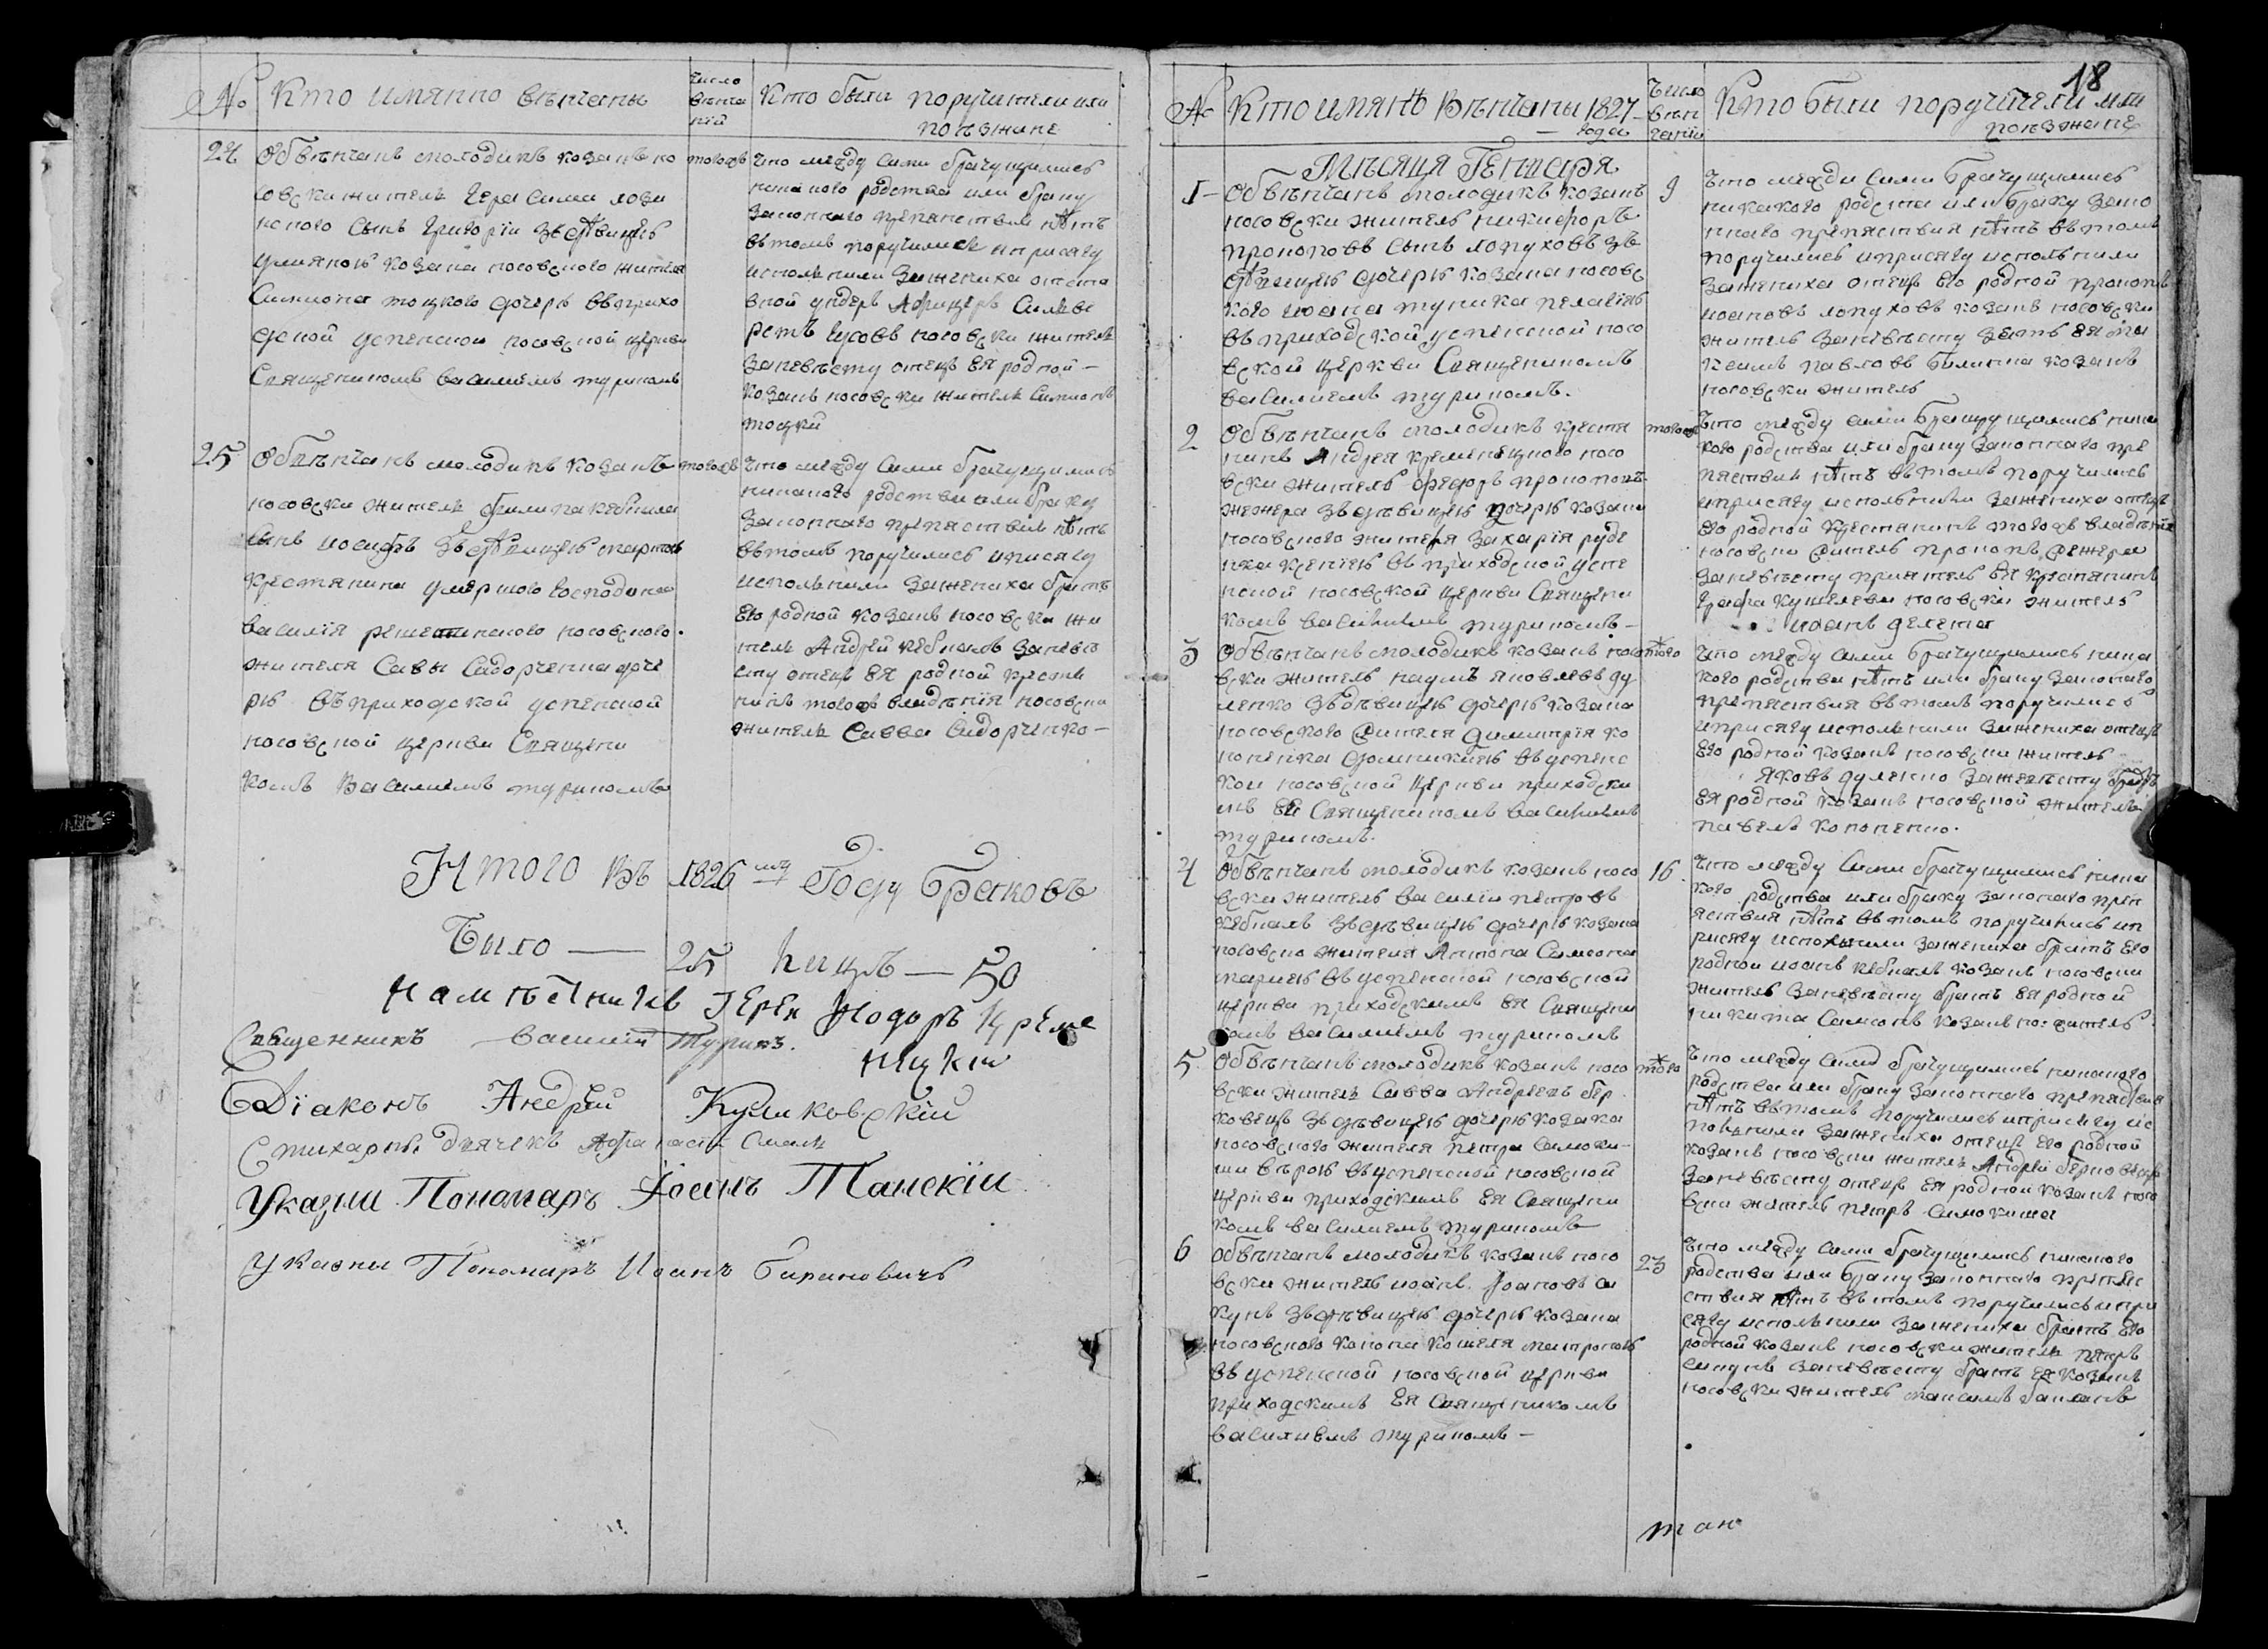 № Кто имянно вѣнчаны
число вѣнчаній
Кто были поручители или
поѣзжане
24 Обвѣнчанъ молодикъ козакъ но
совски житель Герасима лози
нского Сынъ Григорїи зъ дѣвицею
улияною козака носовского жителя
Симиона тоцкого дочерю въ прихо
дской успенской носовской церкви
Священикомъ василиемъ туриномъ
тогожъ
что между сими брачущимись
никакого родства или браку
законного препятствия нѣтъ
въ томъ поручились и присягу
исполнили за жениха отста
вной ундеръ Афицеръ Силиве
рстъ Гусовъ носовски житель
за невѣсту отецъ Ея родной —
козакъ носовски житель Симионъ
тоцкий
25 Обвѣнчанъ молодикъ козакъ
носовски житель
Сынъ иосифъ зъ дѣвицею марфою
крестянина умершого Господина
василїя носовского
жителя Савы Сидорченка доче
рю въ приходской успенской
носовской церкви Священи
комъ Василиемъ туриномъ
тогожъ
что между сими брачущимись
никакого родства или браку
законного препятствия нѣтъ
въ томъ поручились и присягу
исполнили за жениха братъ
Его родной козакъ носовски жи
тель Андрей кебкалъ за невѣ
сту отецъ Ея родной крестя
нинъ тогожъ владѣнїя носовски
житель Савва Сидорченко —
Итого Въ 1826 мъ Году Браковъ
Было — 25 лицъ — 50
Намѣстникъ Іерей Фодоръ Креме
нецкїи
Священникъ Василїй Туринъ.
Дїаконъ Андрей Куликовскій
Стихарны Дьячекъ Афанасїй
Указни Пономаръ Іоанъ Танскїи
Указны Пономаръ Иоанъ Барановичъ
18
№ Кто имянно Вѣнчаны 1827
года
Число вѣнчаний
Кто были поручители или
поѣзжане
Мѣсяца Генваря
1 Обвѣнчанъ молодикъ козакъ
носовски житель никифоръ
прокоповъ сынъ лопуховъ зъ
дѣвицею дочерю козака носовс
кого иоана тупика пелагїею
въ приходской успенской носо
вской церкви Священикомъ
василиемъ туриномъ.
9
Что между сими брачущимись
никакого родства или браку зако
нного препятствия нѣтъ въ томъ
поручились и присягу исполнили
за жениха отецъ Его родной прокопъ
иоановъ лопуховъ козакъ носовски
житель за невѣсту зять Ея ма
ксимъ павловъ козакъ
носовски житель
2 Обвѣнчанъ молодикъ крестя
нинъ Андрея кременецкого носо
вски житель федоръ прокоповъ
жежера зъ дѣвицею дочерю козака
носовского жителя Захарїя руде
нка ксенїею въ приходской успе
нской носовской церкви Священи
комъ василиемъ туриномъ —
тогожъ
Что между сими брачущимись ника
кого родства или браку законного пре
пятствия нѣтъ въ томъ поручились
и присягу исполнили за жениха отецъ
Его родной крестянинъ тогожъ владѣнїя
носовски житель прокопъ жежера
за невѣсту приятель Ея крестянинъ
Графа кушелева носовски житель
иоанъ
3 Обвѣнчанъ молодикъ козакъ носо
вски житель наумъ яковлевъ ду
ленко зъ дѣвицею дочерю козака
носовского жителя Димитрїя ко
ноненка домникїею въ успенс
кои носовской церкви приходски
мъ Ея Священикомъ василиемъ
туриномъ.
тогожъ
Что между сими брачущимись ника
кого родства нѣтъ или браку законого
препятствия въ томъ поручились
и присягу исполнили за жениха отецъ
Его родной козакъ носовски житель
яковъ дуленко за невѣсту братъ
Ея родной козакъ носовской житель
павелъ кононенко.
4 Обвѣнчанъ молодикъ козакъ носо
вски житель василїи петровъ
кебкалъ зъ дѣвицею дочерю козака
носовско жителя Антона Самсона
мариею въ успенской носовской
церкви приходскимъ Ея Священи
комъ василиемъ туриномъ
16.
Что между сими брачущимись ника
кого родства или браку законого преп
яствия нѣтъ въ томъ поручились ип
рисягу исполнили за жениха братъ Его
родной иоанъ кебкалъ козакъ носовски
житель за невѣсту братъ Ея родной
никита Самсонъ козакъ но: житель
5 Обвѣнчанъ молодикъ козакъ носо
вски житель Савва Андреевъ бер
ковецъ зъ дѣвицею дочерю козака
носовского жителя петра Симоки
ши вѣрою въ успенской носовской
церкви приходскимъ Ея Священи
комъ василиемъ туриномъ
тогожъ
Что между сими брачущимись никакого
родства или браку законного препядствия
нѣтъ въ томъ поручились и присягу ис
полнили за жениха отецъ Его родной
козакъ носовски житель Андрей берковецъ
за невѣсту отецъ Ея родной козакъ носо
вски житель петръ Симокиша
6 Обвѣнчанъ молодикъ козакъ носо
вски житель иоанъ Іоановъ си
кунъ зъ дѣвицею дочерю козака
носовского конона кошеля матроною
въ успенской носовской церкви
приходскимъ Ея Священикомъ
василиемъ туриномъ —
23
Что между сими брачущимись никакого
родства или браку законного препяс
ствия нѣтъ въ томъ поручились и при
сягу исполнили за жениха братъ Его
родной козакъ носовски житель петръ
сикунъ за невѣсту братъ Ея козакъ
носовски житель максимъ
тан